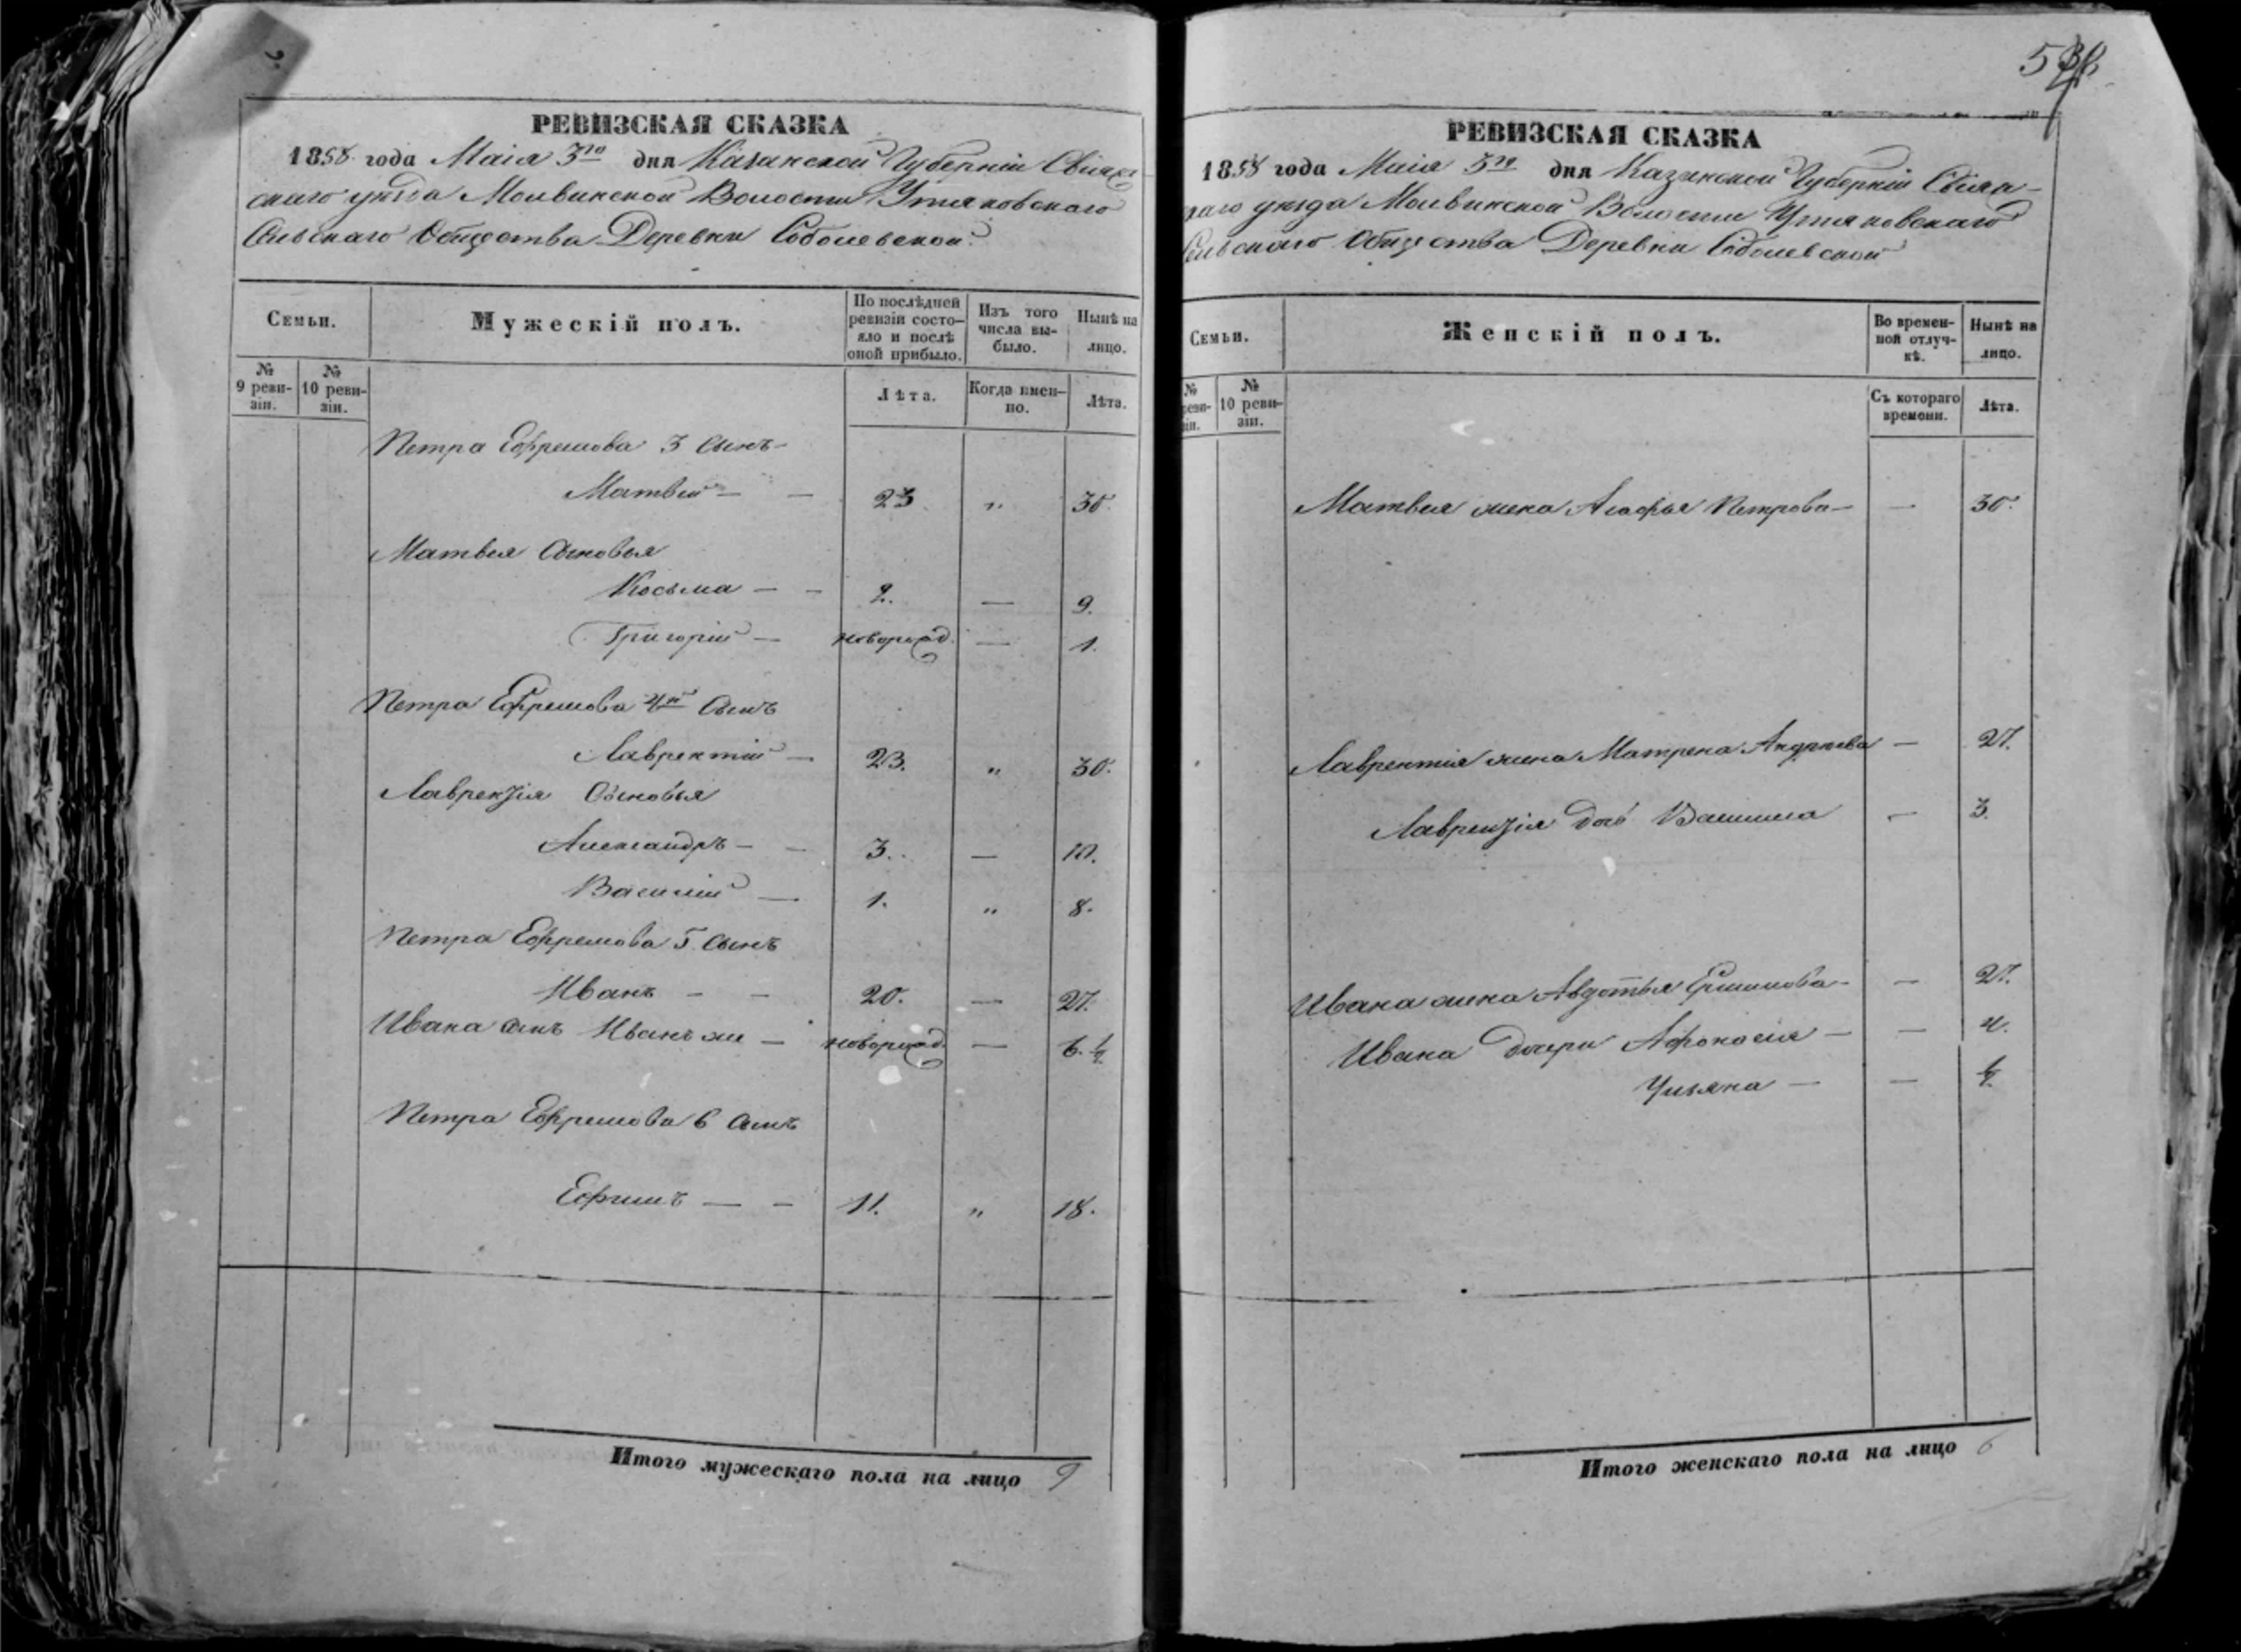 РЕВИЗСКАЯ СКАЗКА
1858 года Маія 3го дня Казанской Губерніи Свіяж-
скаго уѣзда Молвинской Волости Утяковскаго
Сельскаго Общества Деревни Соболевской.
Семьи.
Мужескій полъ.
По послѣдней
ревизіи состо-
яло и послѣ
оной прибыло.
Изъ того
числа вы-
было.
Нынѣ на
лицо.
№
9 реви-
зіи.
№
10 реви-
зіи.
Лѣта.
Когда имен-
но.
Лѣта.
Петра Ефремова 3 сынъ-
Матвей — — 23 " 30.
Матвея сыновья
Косьма — — 2. — 9.
Григорій — новорожд. — 1.
Петра Ефремова 4й сынъ
Лаврентій — 23. " 30.
Лаврентія Сыновья
Александръ — — 3. — 10.
Василій — 1. " 8.
Петра Ефремова 5 сынъ
Иванъ — — 20. — 27.
Ивана сынъ Иванъ же — новорожд. — 6.
Петра Ефремова 6 сынъ
Ефимъ — — 11. " 18.
Итого мужескаго пола на лицо 9
РЕВИЗСКАЯ СКАЗКА
1858 года Маія 3го дня Казанской Губерніи Свіяж-
скаго уѣзда Молвинской Волости Утяковскаго
Сельскаго Общества Деревни Соболевской
Семьи.
Женскій полъ.
Во времен-
ной отлуч-
кѣ.
Нынѣ на
лицо.
№
реви-
зіи.
№
10 реви-
зіи.
Съ котораго
времени.
Лѣта.
Матвея жена Агафья Петрова — — 30.
Лаврентія жена Матрена Андреева — 27.
Лаврентія дочь — 3.
Ивана жена Авдотья — — 27.
Ивана дочери Афонасія — — 4.
Ульяна — —
Итого женскаго пола на лицо 6